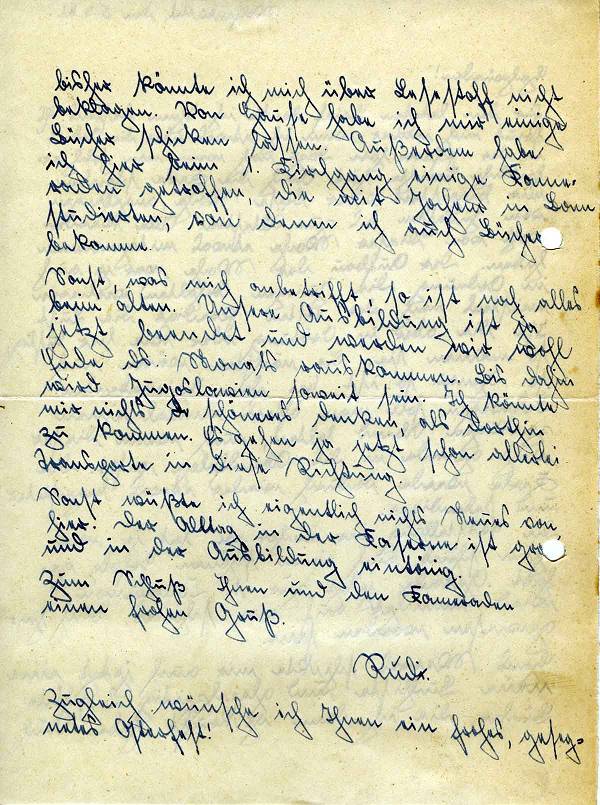 bisher könnte ich mich über Lesestoff nicht
beklagen. Von Hause habe ich mir einige
Bücher schicken lassen. Außerdem habe
ich hier beim 1. Kirchgang einige Kame-
raden getroffen, die mit Jochem in Bonn
studierten, von denen ich auch Bücher
bekomme.
Sonst, was mich anbetrifft, so ist noch alles
beim alten. Unsere Ausbildung ist ja
jetzt beendet und werden wir wohl
Ende ds. Monats rauskommen. Bis dahin
wird Jugoslawien soweit sein. Ich könnte
mir nichts schöneres denken, als dorthin
zu kommen. Es gehen ja jetzt schon allerlei
Transporte in diese Richtung.
Sonst wüßte ich eigentlich nichts Neues von
hier. Der Alltag in der Kaserne ist grau
und in der Ausbildung eintönig.
Zum Schluß Ihnen und den Kameraden
einen frohen Gruß.
Rudi.
Zugleich wünsche ich Ihnen ein frohes, geseg-
netes Osterfest!